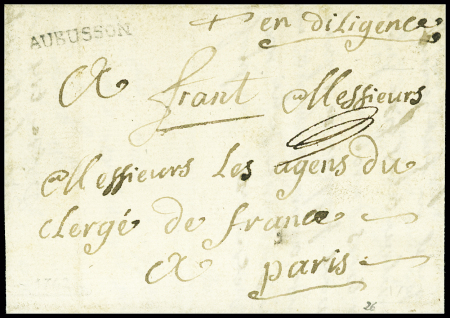 + en diligence
AUBUSSON
A frant a Messieurs
a Messieurs Les agens du
clergé de france
A paris
26